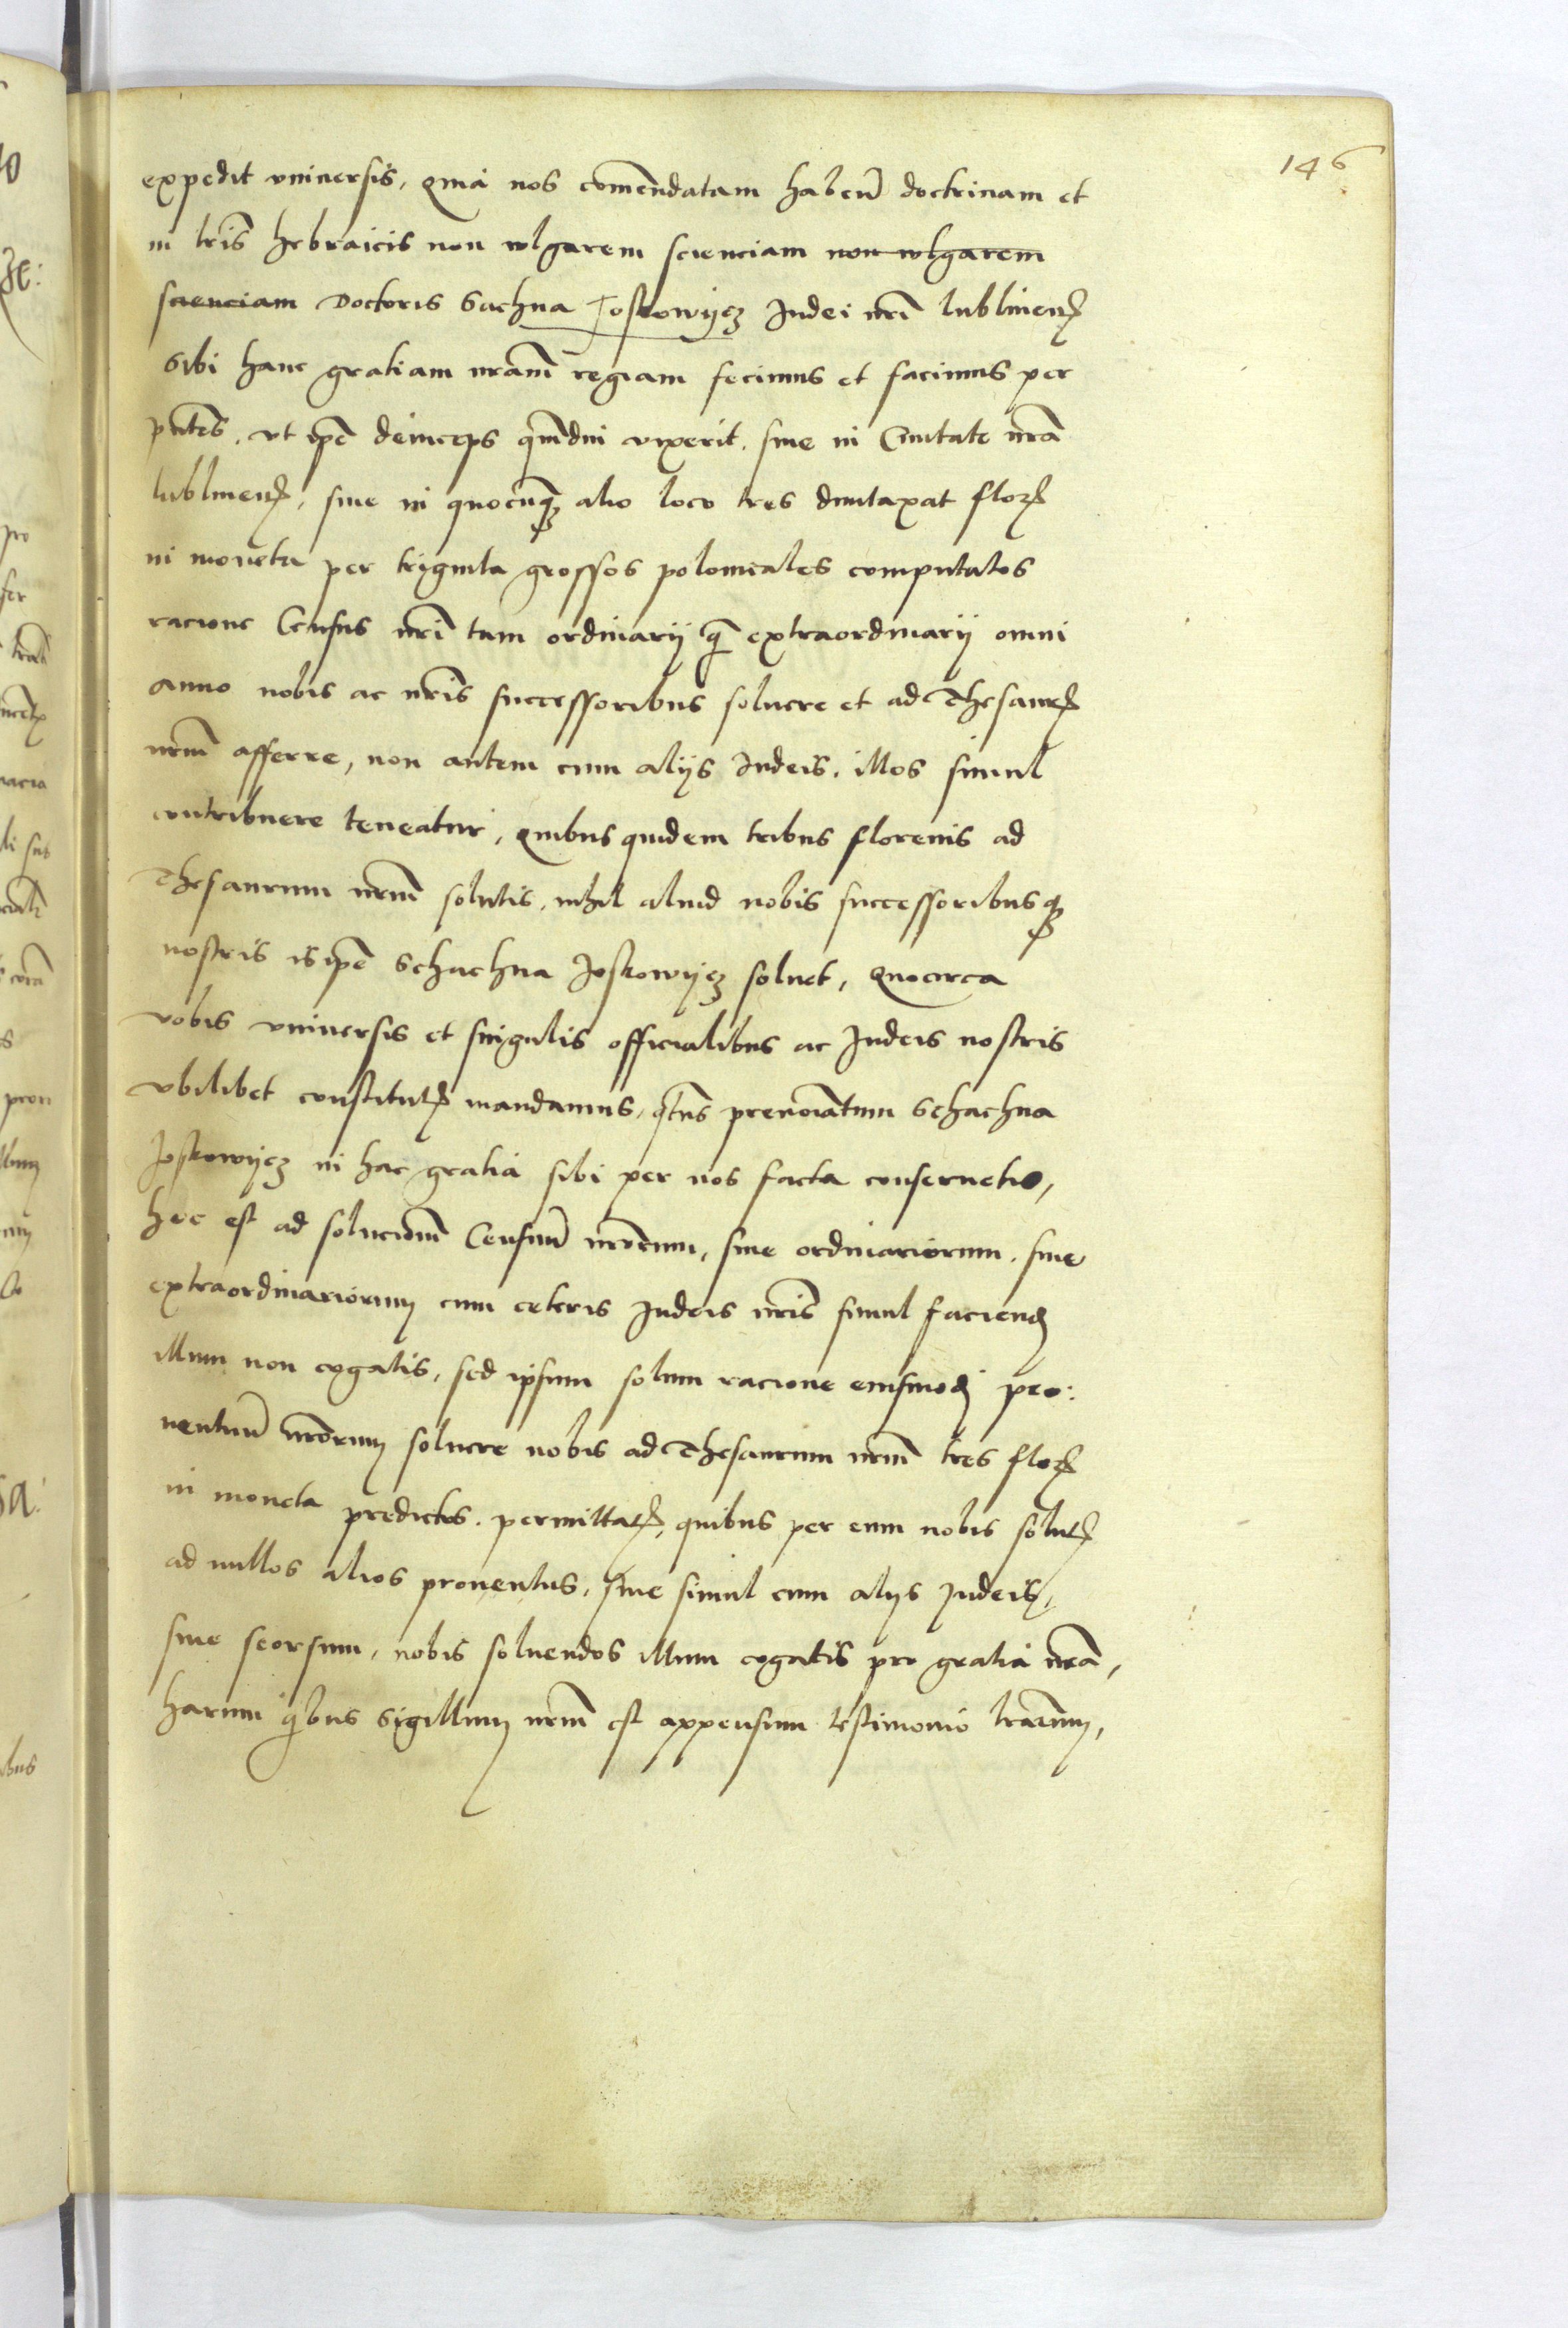 146
expedit vniuersis, Quia nos comẽndatam habeñ doctrinam et
in lr̃is hebraicis non wlgarem scienciam non wlgarem
scienciam Doctoris Sachna Joskowycz Judei nr̃i lublineñ
Sibi hanc gratiam nr̃am regiam fecimus et facimus per
pñtes, vt ip̃e deinceps q̃mdiu vixerit, siue in Ciuitate nr̃a
lublineñ, siue in quocũq3 alio loco tres duntaxat floꝝ
in moneta per triginta grossos polonicales computatos
racione Census nr̃i tam ordinarij q̃ extraordinarij omni
anno nobis ac nr̃is successoribus soluere et ad Thesaurꝝ
nr̃m afferre, non autem cum alijs Judeis, illos simul
contribuere teneatur, Quibus quidem tribus florenis ad
Thesaurum nr̃m solutis, nihil aliud nobis successoribusq3
nostris is ip̃e Schachna Joskowycz soluet, Quocirca
vobis vniuersis et singulis officialibus ac Judeis nostris
vbilibet constitutꝭ mandamus, q̃tns prenoĩatum Schachna
Joskowycz in hac gratia sibi per nos facta conseruetis,
hoc est ad solucionẽ Censuũ nr̃orum, siue ordinariorum, siue
extraordinariorum cum ceteris Judeis nr̃is simul faciendꝭ
illum non cogatis, sed ipsum solum racione eiusmodj pro:
uentuũ nr̃orum soluere nobis ad Thesaurum nr̃m tres floꝝ
in moneta predictos permittatꝭ, quibus per eum nobis solutꝭ
ad nullos alios prouentus, siue simul cum alijs Judeis,
siue seorsum, nobis soluendos illum cogatis pro gratia nr̃a,
harum q̃bus Sigillum nr̃m est appensum testimonio lr̃arum,